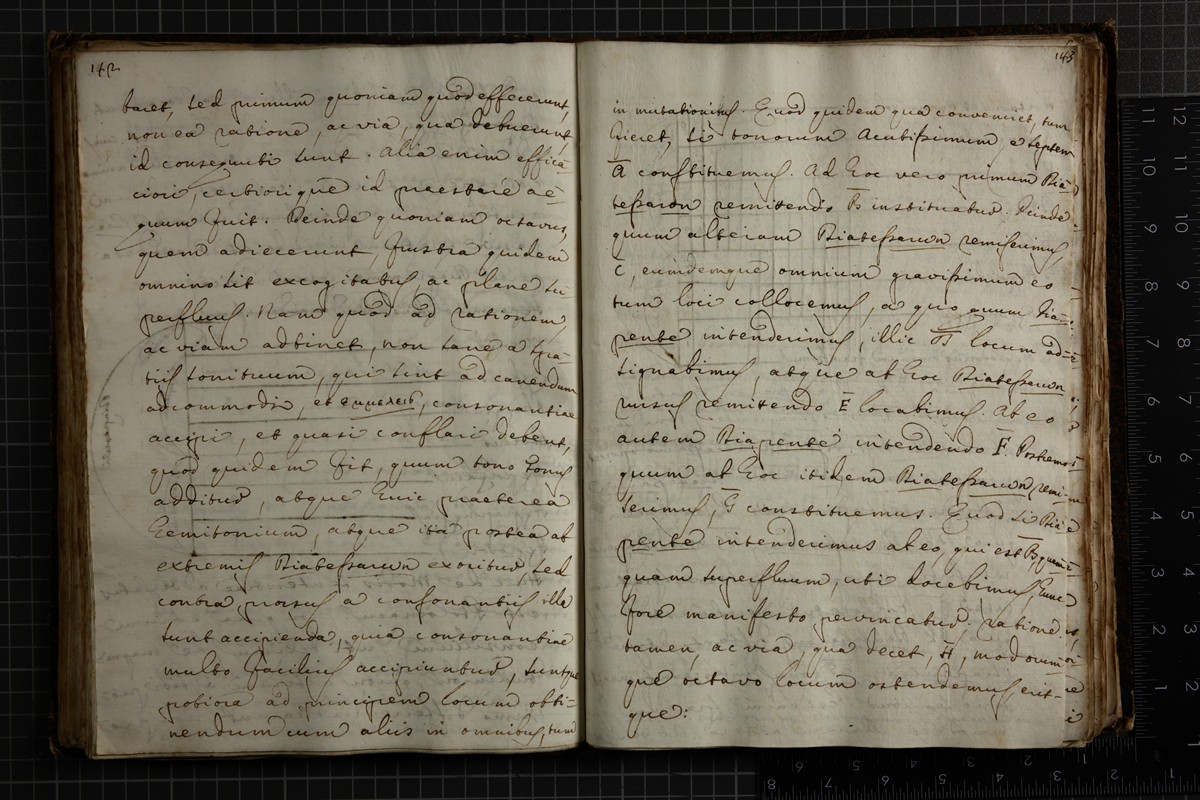 142
baret, sed primum quoniam quod effecerunt,
non ea ratione, ac via, qua debuerunt,
id consequuti sunt. Alia enim effica-
ciori, certiorique id praestare ae-
quum fuit. Deinde quoniam octavus,
quem adiecerunt, frustra quidem
omnino sit excogitatus, ac plane su-
perfluus. Nam quod ad rationem,
ac viam adtinet, non sane a
sonituum, qui sint ad canendum
adcommodi, et εμμελεις, consonantiae
accipi, et quasi conflari debent,
quod quidem fit, quum tono tonus
additur, atque huic praeterea
hemitonium, atque ita postea ab
extremis Diatessaron exoritur, sed
contra prorsus a consonantiis illa
sunt accipienda, quia consonantiae
multo facilius accipiuntur, suntque
potiora ad principem locum obti-
nendum cum aliis in omnibus, tum
143
in mutationibus. Quod quidem qua conveniret, tum
fieret, si tonorum acutissimum e septem
A constituemus. Ad hoc vero primum Dia-
tessaron remittendo B instituatur. Deinde
quum alteram Diatessaron remiserimus
C, eumdemque omnium gravissimum eo
tum loci collocemus, a quo quum Dia-
pente intenderimus, illic D locum ad-
signabimus, atque ab hoc Diatessaron
rursus remittendo E locabimus. Ab eo
autem Diapente intendendo F. Postremo
quum ab hoc itidem Diatessaron remi-
serimus, G constituemus. Quod si Dia-
pente intenderimus ab eo, qui est
quam superfluum, uti docebimus, hunc
fore manifesto pervincatur. ratione
tamen, ac via, qua decet, H, modorum-
que octavo locum ostendemus, erit-
que: